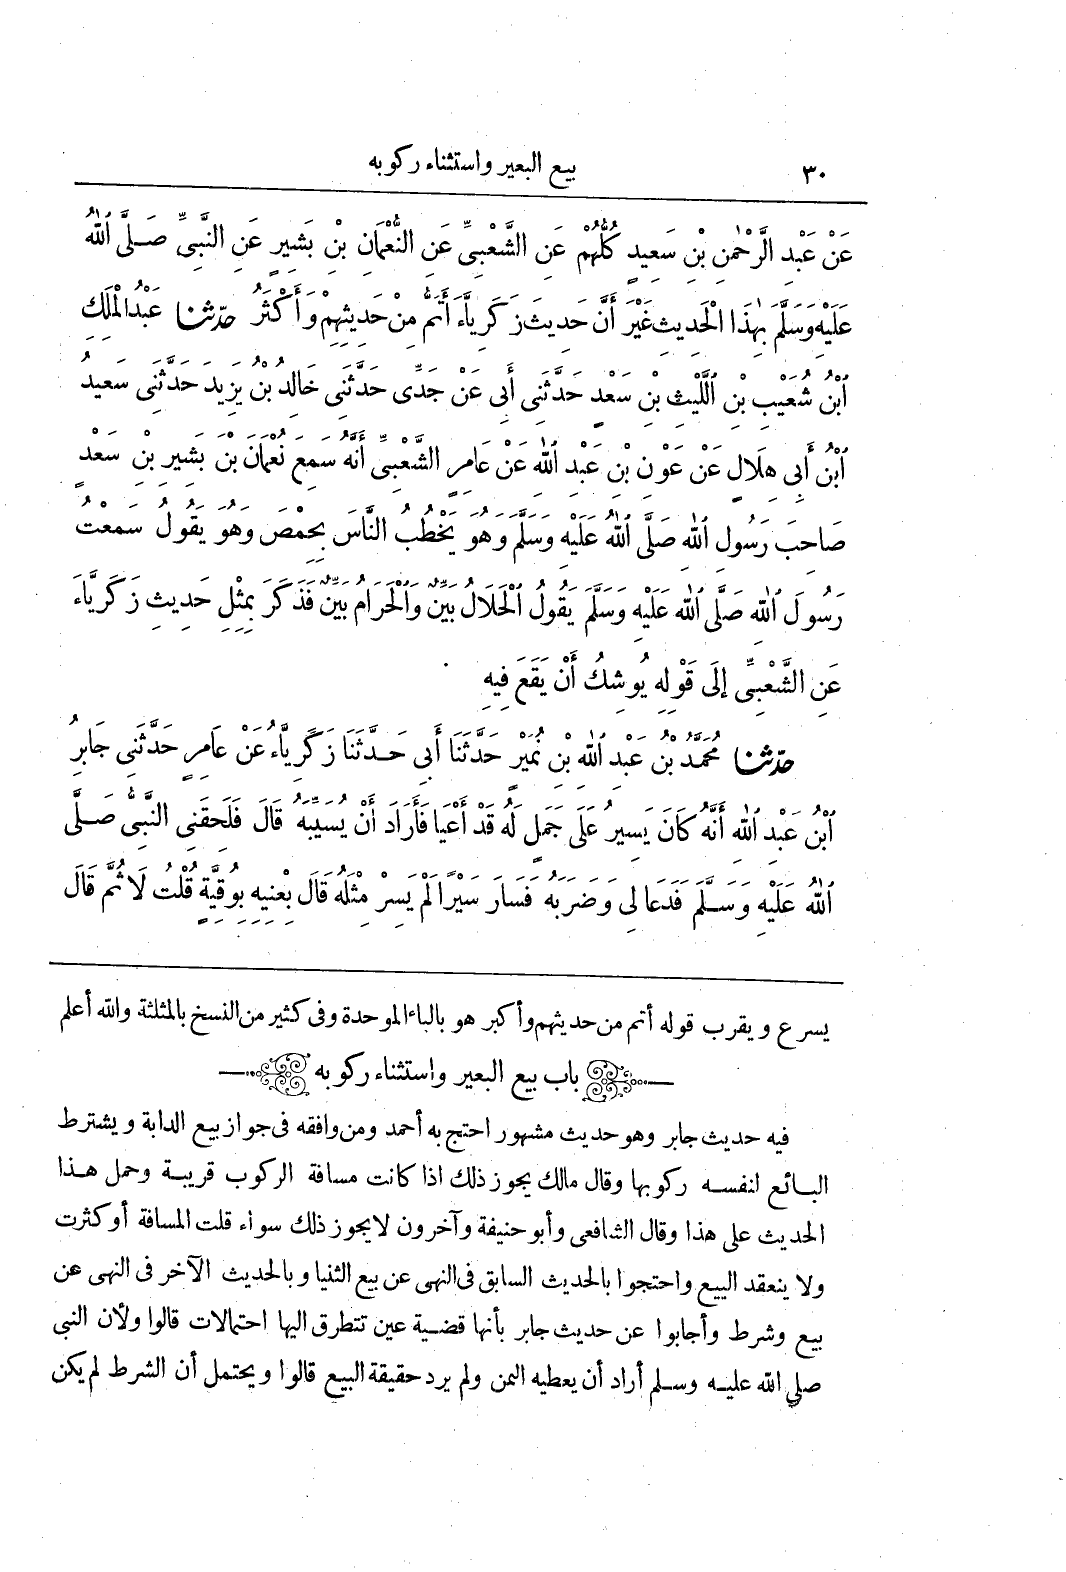 ٣٠
بيع البعير واستثناء ركوبه
عَنْ عَبْدِ الرَّحْمٰنِ بْنِ سَعِيدٍ كُلُّهُمْ عَنِ الشَّعْبِيِّ عَنِ النُّعْمَانِ بْنِ بَشِيرٍ عَنِ النَّبِيِّ صَلَّى اللهُ
عَلَيْهِ وَسَلَّمَ بِهٰذَا الْحَدِيثِ غَيْرَ أَنَّ حَدِيثَ زَكَرِيَّاءَ أَتَمُّ مِنْ حَدِيثِهِمْ وَأَكْثَرُ حدّثنا عَبْدُ الْمَلِكِ
ابْنُ شُعَيْبِ بْنِ اللَّيْثِ بْنِ سَعْدٍ حَدَّثَنِي أَبِي عَنْ جَدِّي حَدَّثَنِي خَالِدُ بْنُ يَزِيدَ حَدَّثَنِي سَعِيدُ
ابْنُ أَبِي هِلَالٍ عَنْ عَوْنِ بْنِ عَبْدِ اللهِ عَنْ عَامِرٍ الشَّعْبِيِّ أَنَّهُ سَمِعَ نُعْمَانَ بْنَ بَشِيرِ بْنِ سَعْدٍ
صَاحِبَ رَسُولِ اللهِ صَلَّى اللهُ عَلَيْهِ وَسَلَّمَ وَهُوَ يَخْطُبُ النَّاسَ بِحِمْصَ وَهُوَ يَقُولُ سَمِعْتُ
رَسُولَ اللهِ صَلَّى اللهُ عَلَيْهِ وَسَلَّمَ يَقُولُ الْحَلَالُ بَيِّنٌ وَالْحَرَامُ بَيِّنٌ فَذَكَرَ بِمِثْلِ حَدِيثِ زَكَرِيَّاءَ
عَنِ الشَّعْبِيِّ إِلَى قَوْلِهِ يُوشِكُ أَنْ يَقَعَ فِيهِ
حدّثنا مُحَمَّدُ بْنُ عَبْدِ اللهِ بْنِ نُمَيْرٍ حَدَّثَنَا أَبِي حَدَّثَنَا زَكَرِيَّاءُ عَنْ عَامِرٍ حَدَّثَنِي جَابِرُ
ابْنُ عَبْدِ اللهِ أَنَّهُ كَانَ يَسِيرُ عَلَى جَمَلٍ لَهُ قَدْ أَعْيَا فَأَرَادَ أَنْ يُسَيِّبَهُ قَالَ فَلَحِقَنِي النَّبِيُّ صَلَّى
اللهُ عَلَيْهِ وَسَلَّمَ فَدَعَا لِي وَضَرَبَهُ فَسَارَ سَيْرًا لَمْ يَسِرْ مِثْلَهُ قَالَ بِعْنِيهِ بِوُقِيَّةٍ قُلْتُ لَا ثُمَّ قَالَ
يسرع ويقرب قوله أتم من حديثهم وأكبر هو بالباء الموحدة وفى كثير من النسخ بالمثلثة والله أعلم
باب بيع البعير واستثناء ركوبه
فيه حديث جابر وهو حديث مشهور احتج به أحمد ومن وافقه فى جواز بيع الدابة ويشترط
البائع لنفسه ركوبها وقال مالك يجوز ذلك اذا كانت مسافة الركوب قريبة وحمل هذا
الحديث على هذا وقال الشافعى وأبو حنيفة وآخرون لا يجوز ذلك سواء قلت المسافة أو كثرت
ولا ينعقد البيع واحتجوا بالحديث السابق فى النهى عن بيع الثنيا وبالحديث الآخر فى النهى عن
بيع وشرط وأجابوا عن حديث جابر بأنها قضية عين تتطرق اليها احتمالات قالوا ولأن النبى
صلى الله عليه وسلم أراد أن يعطيه الثمن ولم يرد حقيقة البيع قالوا ويحتمل أن الشرط لم يكن